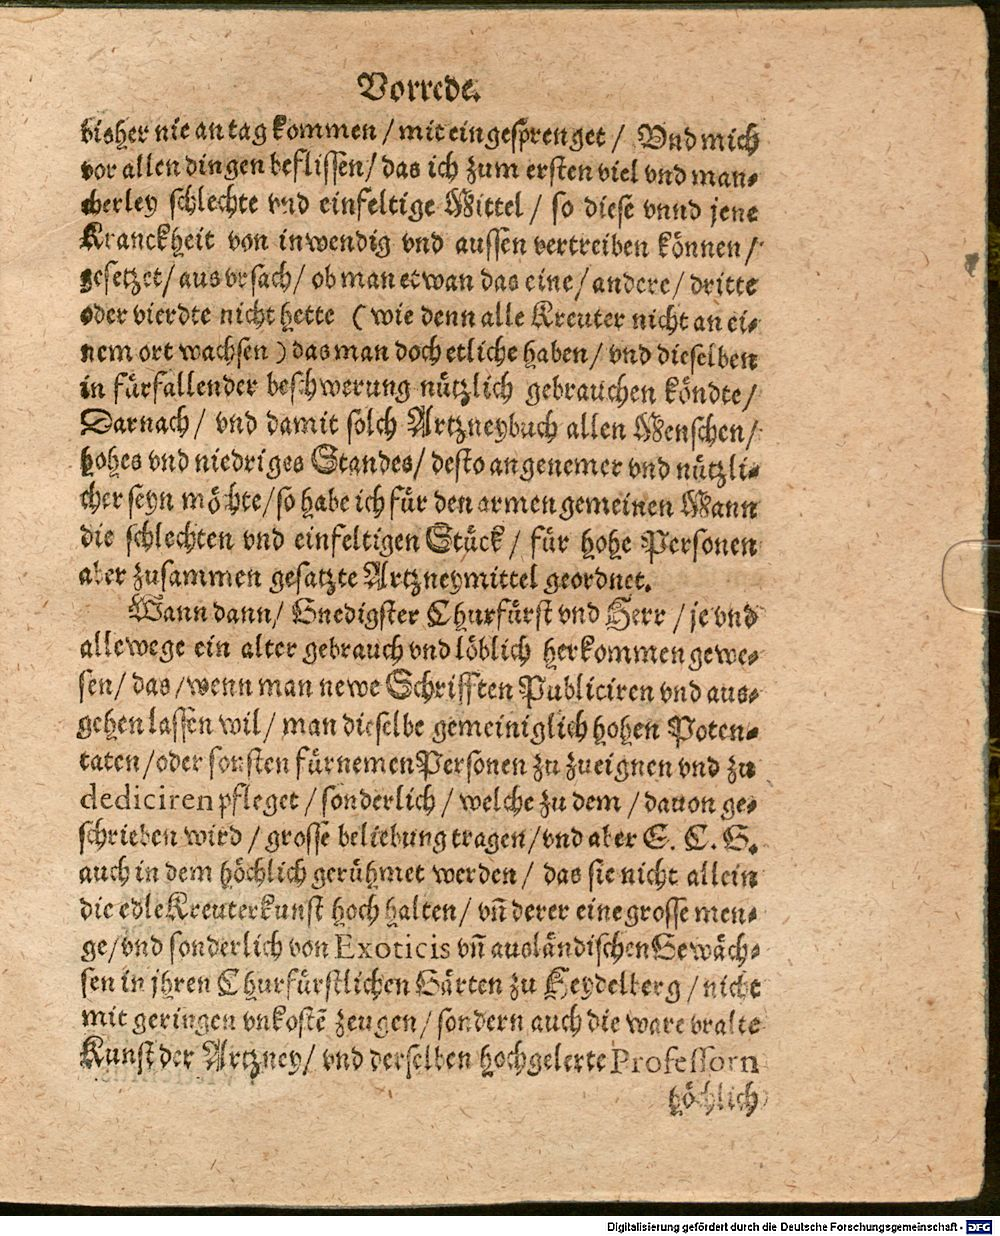 Vorrede.
bisher nie an tag kommen / mit eingesprenget / Vnd mich
vor allen dingen beflissen / das ich zum ersten viel vnd man-
cherley schlechte vnd einfeltige Mittel / so diese vnnd jene
Kranckheit von inwendig vnd aussen vertreiben können /
gesetzet / aus vrsach / ob man etwan das eine / andere / dritte
oder vierdte nicht hette ( wie denn alle Kreuter nicht an ei-
nem ort wachsen ) das man doch etliche haben / vnd dieselben
in fürfallender beschwerung nützlich gebrauchen köndte /
Darnach / vnd damit solch Artzneybuch allen Menschen /
hohes vnd niedriges Standes / desto angenemer vnd nützli-
cher seyn möchte / so habe ich für den armen gemeinen Mann
die schlechten vnd einfeltigen Stück / für hohe Personen
aber zusammen gesatzte Artzneymittel geordnet.
Wann dann / Gnedigster Churfürst vnd Herr / je vnd
allewege ein alter gebrauch vnd löblich herkommen gewe-
sen / das / wenn man newe Schrifften Publiciren vnd aus-
gehen lassen wil / man dieselbe gemeiniglich hohen Poten-
taten / oder sonsten fürnemen Personen zu zueignen vnd zu
dediciren pfleget / sonderlich / welche zu dem / dauon ge-
schrieben wird / grosse beliebung tragen / vnd aber E. C. G.
auch in dem höchlich gerühmet werden / das sie nicht allein
die edle Kreuterkunst hoch halten / vñ derer eine grosse men-
ge / vnd sonderlich von Exoticis vñ ausländischen Gewäch-
sen in jhren Churfürstlichen Gärten zu Heydelberg / nicht
mit geringen vnkostē zeugen / sondern auch die ware vralte
Kunst der Artzney / vnd derselben hochgelerte Professorn
höchlich
Digitalisierung gefördert durch die Deutsche Forschungsgemeinschaft - DFG